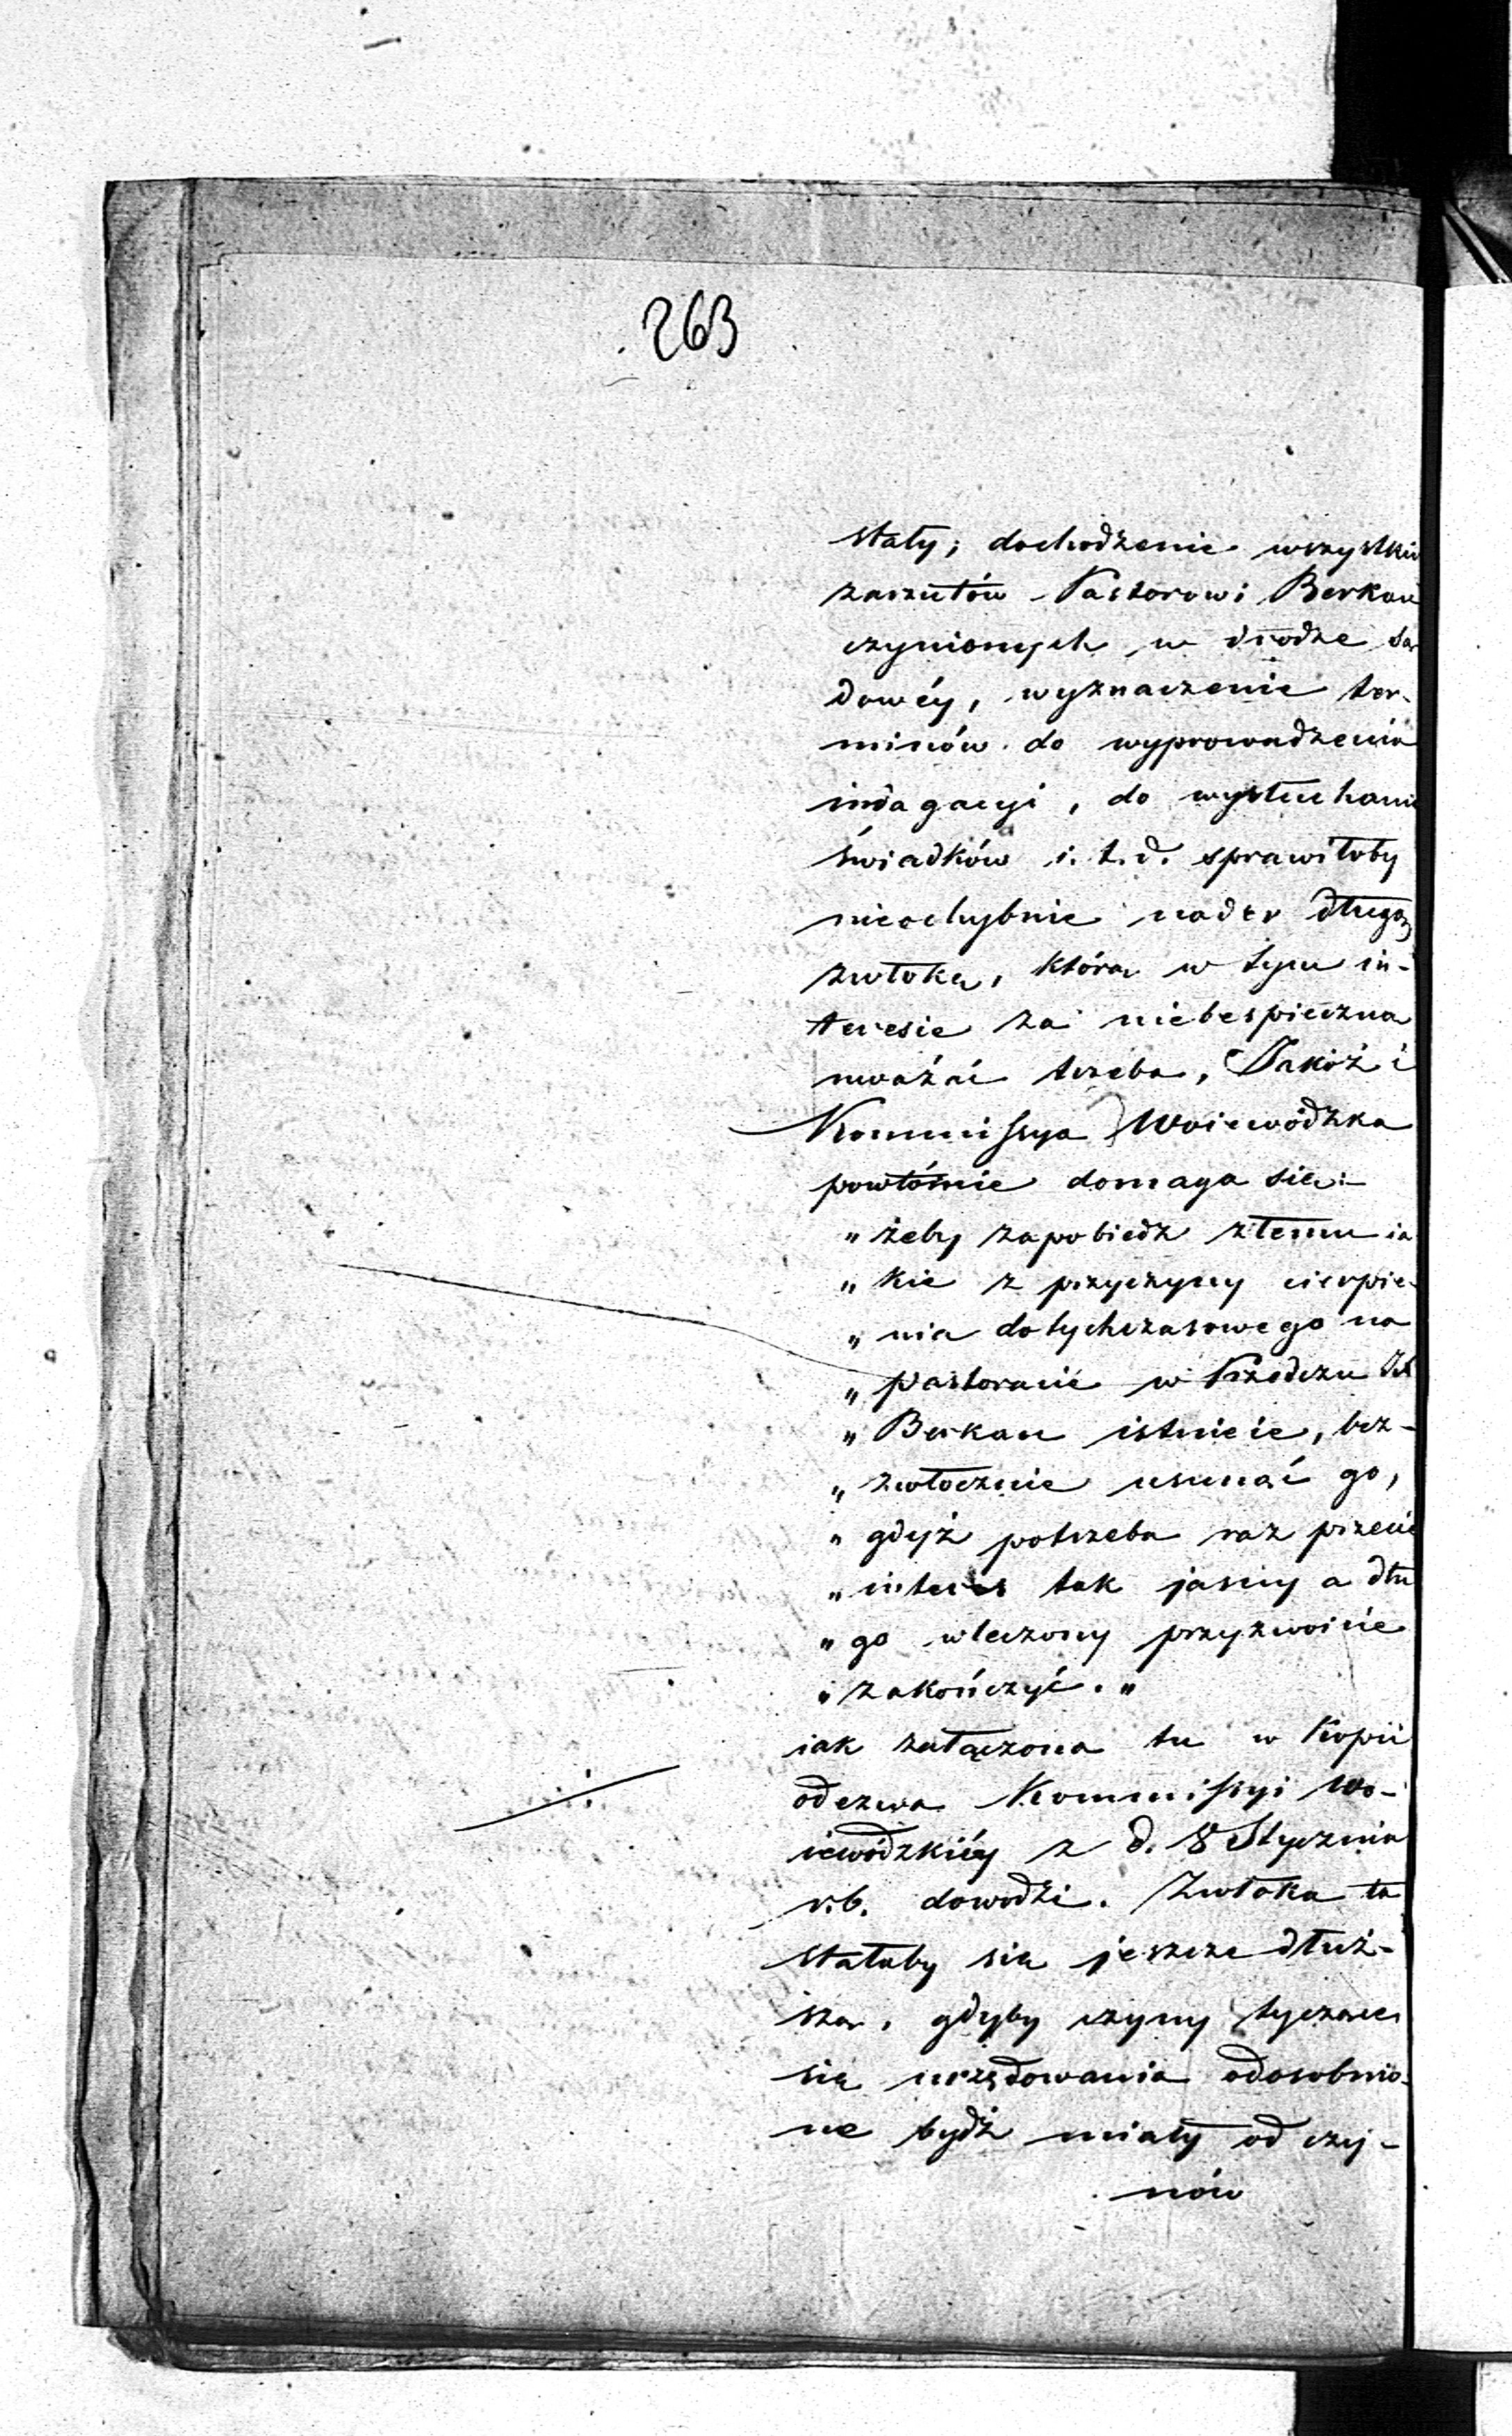 263
stały; dochodzenie wszystkich
zarzutów Pastorowi Berkau
czynionych w drodze są
dowéy, wyznaczenie ter-
minów do wyprowadzenia
indagacyi, do wysłuchania
świadków i.t.d. sprawiłoby
niechybnie nader długą
zwłokę, którą w tym in-
teresie za niebespieczną
uważać trzeba, Jakoż i
Kommissya Woiewódzka
powtórnie domaga się:
„ żeby zapobiedz złemu ia
„ kie z przyczyny cierpie-
„ nia dotychczasowego na
„ pastoracie w Przedczu
„ Berkau istnieie, bez-
„ zwłocznie usunąć go,
„ gdyż potrzeba raz przecie
„ interes tak jasny a dłu
„ go wleczony przyzwoicie
„ zakończyć. „
iak załączona tu w Kopii
odezwa Kommissyi Wo-
iewódzkiéy z d. 8 Stycznia
r.b. dowodzi. Zwłoka ta
stałaby się jeszcze dłuż-
szą, gdyby czyny tyczące
się urzędowania odosobnio-
ne bydź miały od czy-
nów